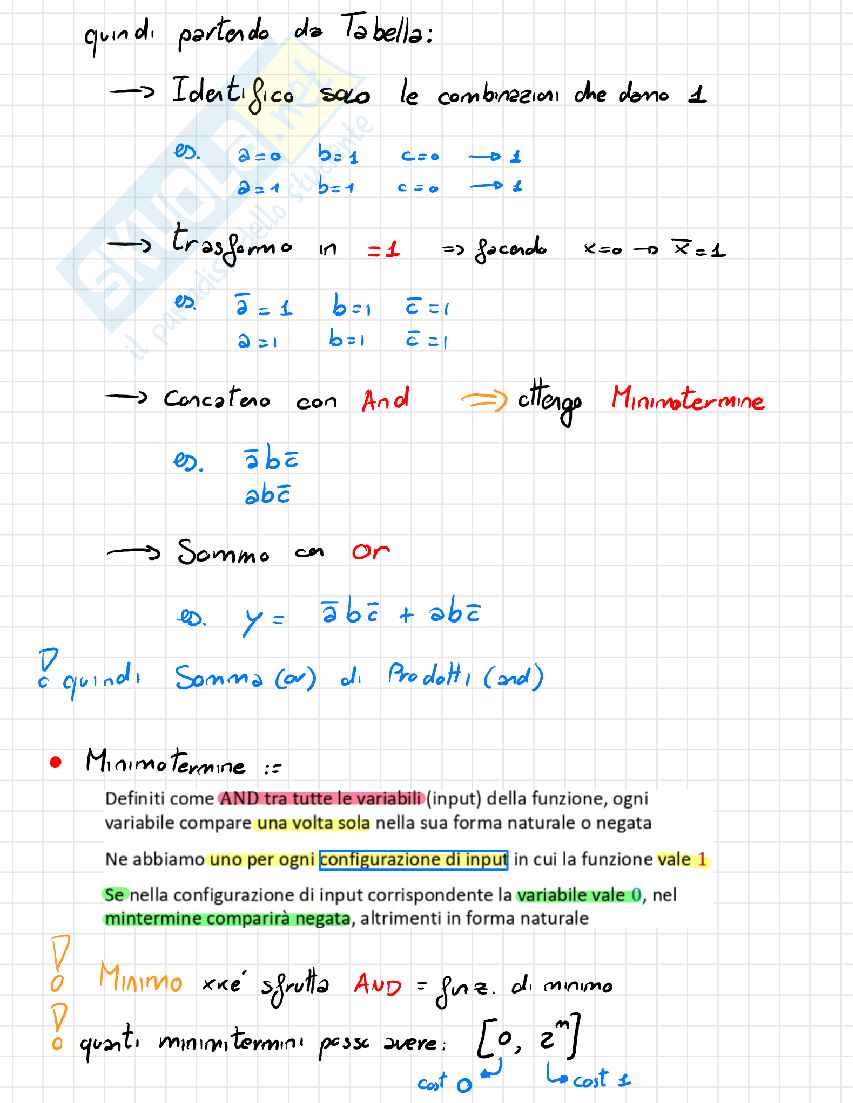 quindi partendo da Tabella:
→ Identifico solo le combinazioni che danno 1
es. a=0 b=1 c=0 → 1
a=1 b=1 c=0 → 1
→ trasformo in =1 => facendo x=0 → x̅=1
es. a̅=1 b=1 c̅=1
a=1 b=1 c̅=1
→ Concateno con And => ottengo Minimotermine
es. a̅bc̅
abc̅
→ Sommo con or
es. y = a̅bc̅ + abc̅
! quindi Somma (or) di Prodotti (and)
• Minimotermine :=
Definiti come AND tra tutte le variabili (input) della funzione, ogni
variabile compare una volta sola nella sua forma naturale o negata
Ne abbiamo uno per ogni configurazione di input in cui la funzione vale 1
Se nella configurazione di input corrispondente la variabile vale 0, nel
mintermine comparirà negata, altrimenti in forma naturale
! Minimo xké sfrutta AND = funz. di minimo
! quanti minimitermini posso avere: [0, 2ⁿ]
cost 0 cost 1
SKUOLA.net
il paradiso dello studente